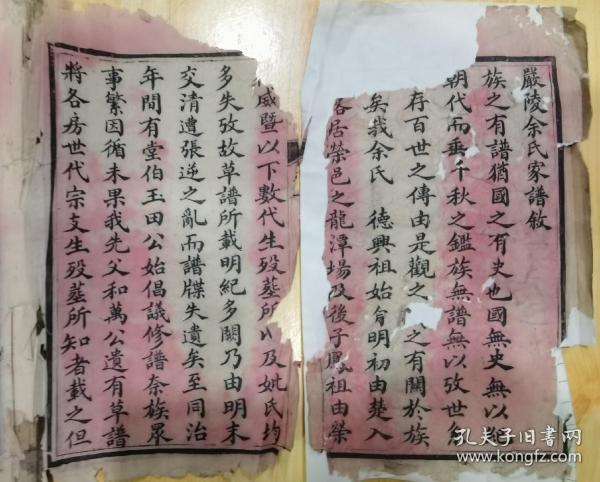 嚴陵余氏家譜敘
族之有譜猶國之有史也國無史無以紀
朝代而垂千秋之鑑族無譜無以攷世
存百世之傳由是觀之之有關於族
矣我余氏 德興祖始自明初由楚入
居榮邑之龍潭場及後子鳳祖由榮
威暨以下數代生殁葬所以及妣氏均
多失攷故草譜所載明紀多闕乃由明末
交清遭張逆之亂而譜牒失遺矣至同治
年間有堂伯玉田公始倡議修譜奈族眾
事繁因循未果我先父和萬公遺有草譜
將各房世代宗支生殁葬所知者載之但
孔夫子旧书网
www.kongfz.com